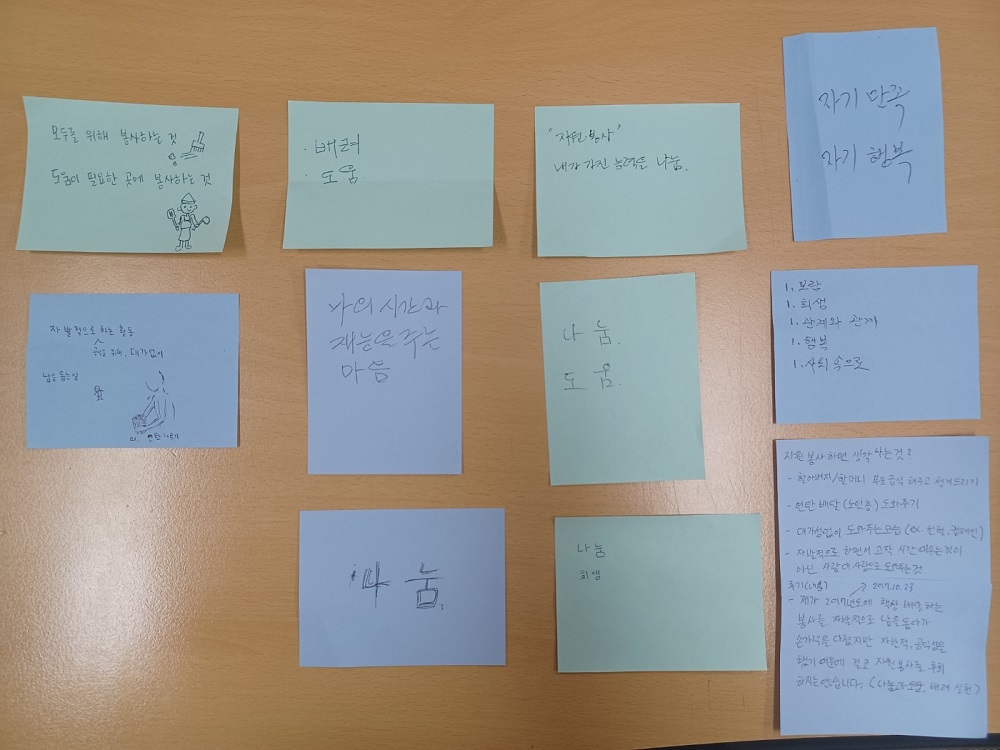 모두를 위해 봉사하는 것
도움이 필요한 곳에 봉사하는 것
· 배려
· 도움
"자원·봉사"
내가 가진 능력을 나눔.
자기 만족
자기 행복
자발적으로 하는 활동
위해, 대가없이
남을 돕는 일
ex. 연탄 나르기
나의 시간과
재능을 주는
마음
나눔.
도움.
1. 보람
1. 희생
1. 관계와 관계
1. 행복
1. 사회 속으로
나눔
나눔
희생
자원봉사 하면 생각하는 것?
- 할아버지/할머니 무료급식 태우고 챙겨드리기
- 연탄 배달 (노인층) 도와주기
- 대가성없이 도와주는 모습 (ex. 헌혈, 캠페인)
- 자발적으로 하면서 고작 시간 때우는것이
아닌 사람 대 사람으로 도와주는것
후기(내용) 2017.10.23
- 제가 2017년도에 책상 하는
봉사를 자발적으로 남을 돕다가
손가락을 다쳤지만 자발적, 공익성을
했기 때문에 결코 자원봉사를 후회
하지는 않습니다. (나눔과 도움, 배려 실천)